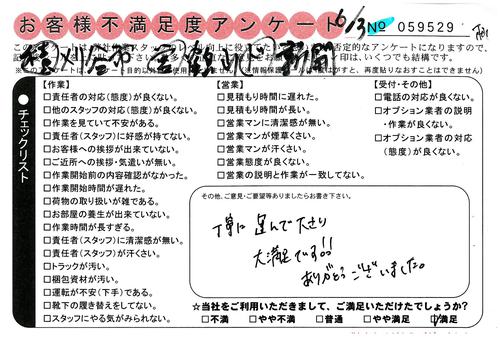 お客様不満足度アンケート
6/3
No 059529
このアンケートは
否定的なアンケートになりますので、
印は、いくつでも結構です。
チェックリスト
【作業】
□責任者の対応(態度)が良くない。
□他のスタッフの対応(態度)が良くない。
□作業を見ていて不安がある。
□責任者(スタッフ)に好感が持てない。
□お客様への挨拶が出来ていない。
□ご近所への挨拶・気遣いが無い。
□作業開始前の内容確認がなかった。
□作業開始時間が遅れた。
□荷物の取り扱いが雑である。
□お部屋の養生が出来ていない。
□作業時間が長すぎる。
□責任者(スタッフ)に清潔感が無い。
□責任者(スタッフ)が汗くさい。
□トラックが汚い。
□梱包資材が汚い。
□運転が不安(下手)である。
□靴下の履き替えをしてない。
□スタッフにやる気がみられない。
【営業】
□見積もり時間に遅れた。
□見積もり時間が長い。
□営業マンに清潔感が無い。
□営業マンが煙草くさい。
□営業マンが汗くさい。
□営業態度が良くない。
□営業の説明と作業が一致してない。
【受付・その他】
□電話の対応が良くない。
□オプション業者の説明
・作業が良くない。
□オプション業者の対応
(態度)が良くない。
その他、ご意見・ご要望等ありましたらお書き下さい。
丁寧に運んで下さり
大満足です!!
ありがとうございました。
☆当社をご利用いただきまして、ご満足いただけたでしょうか?
□不満 □やや不満 □普通 □やや満足 □満足